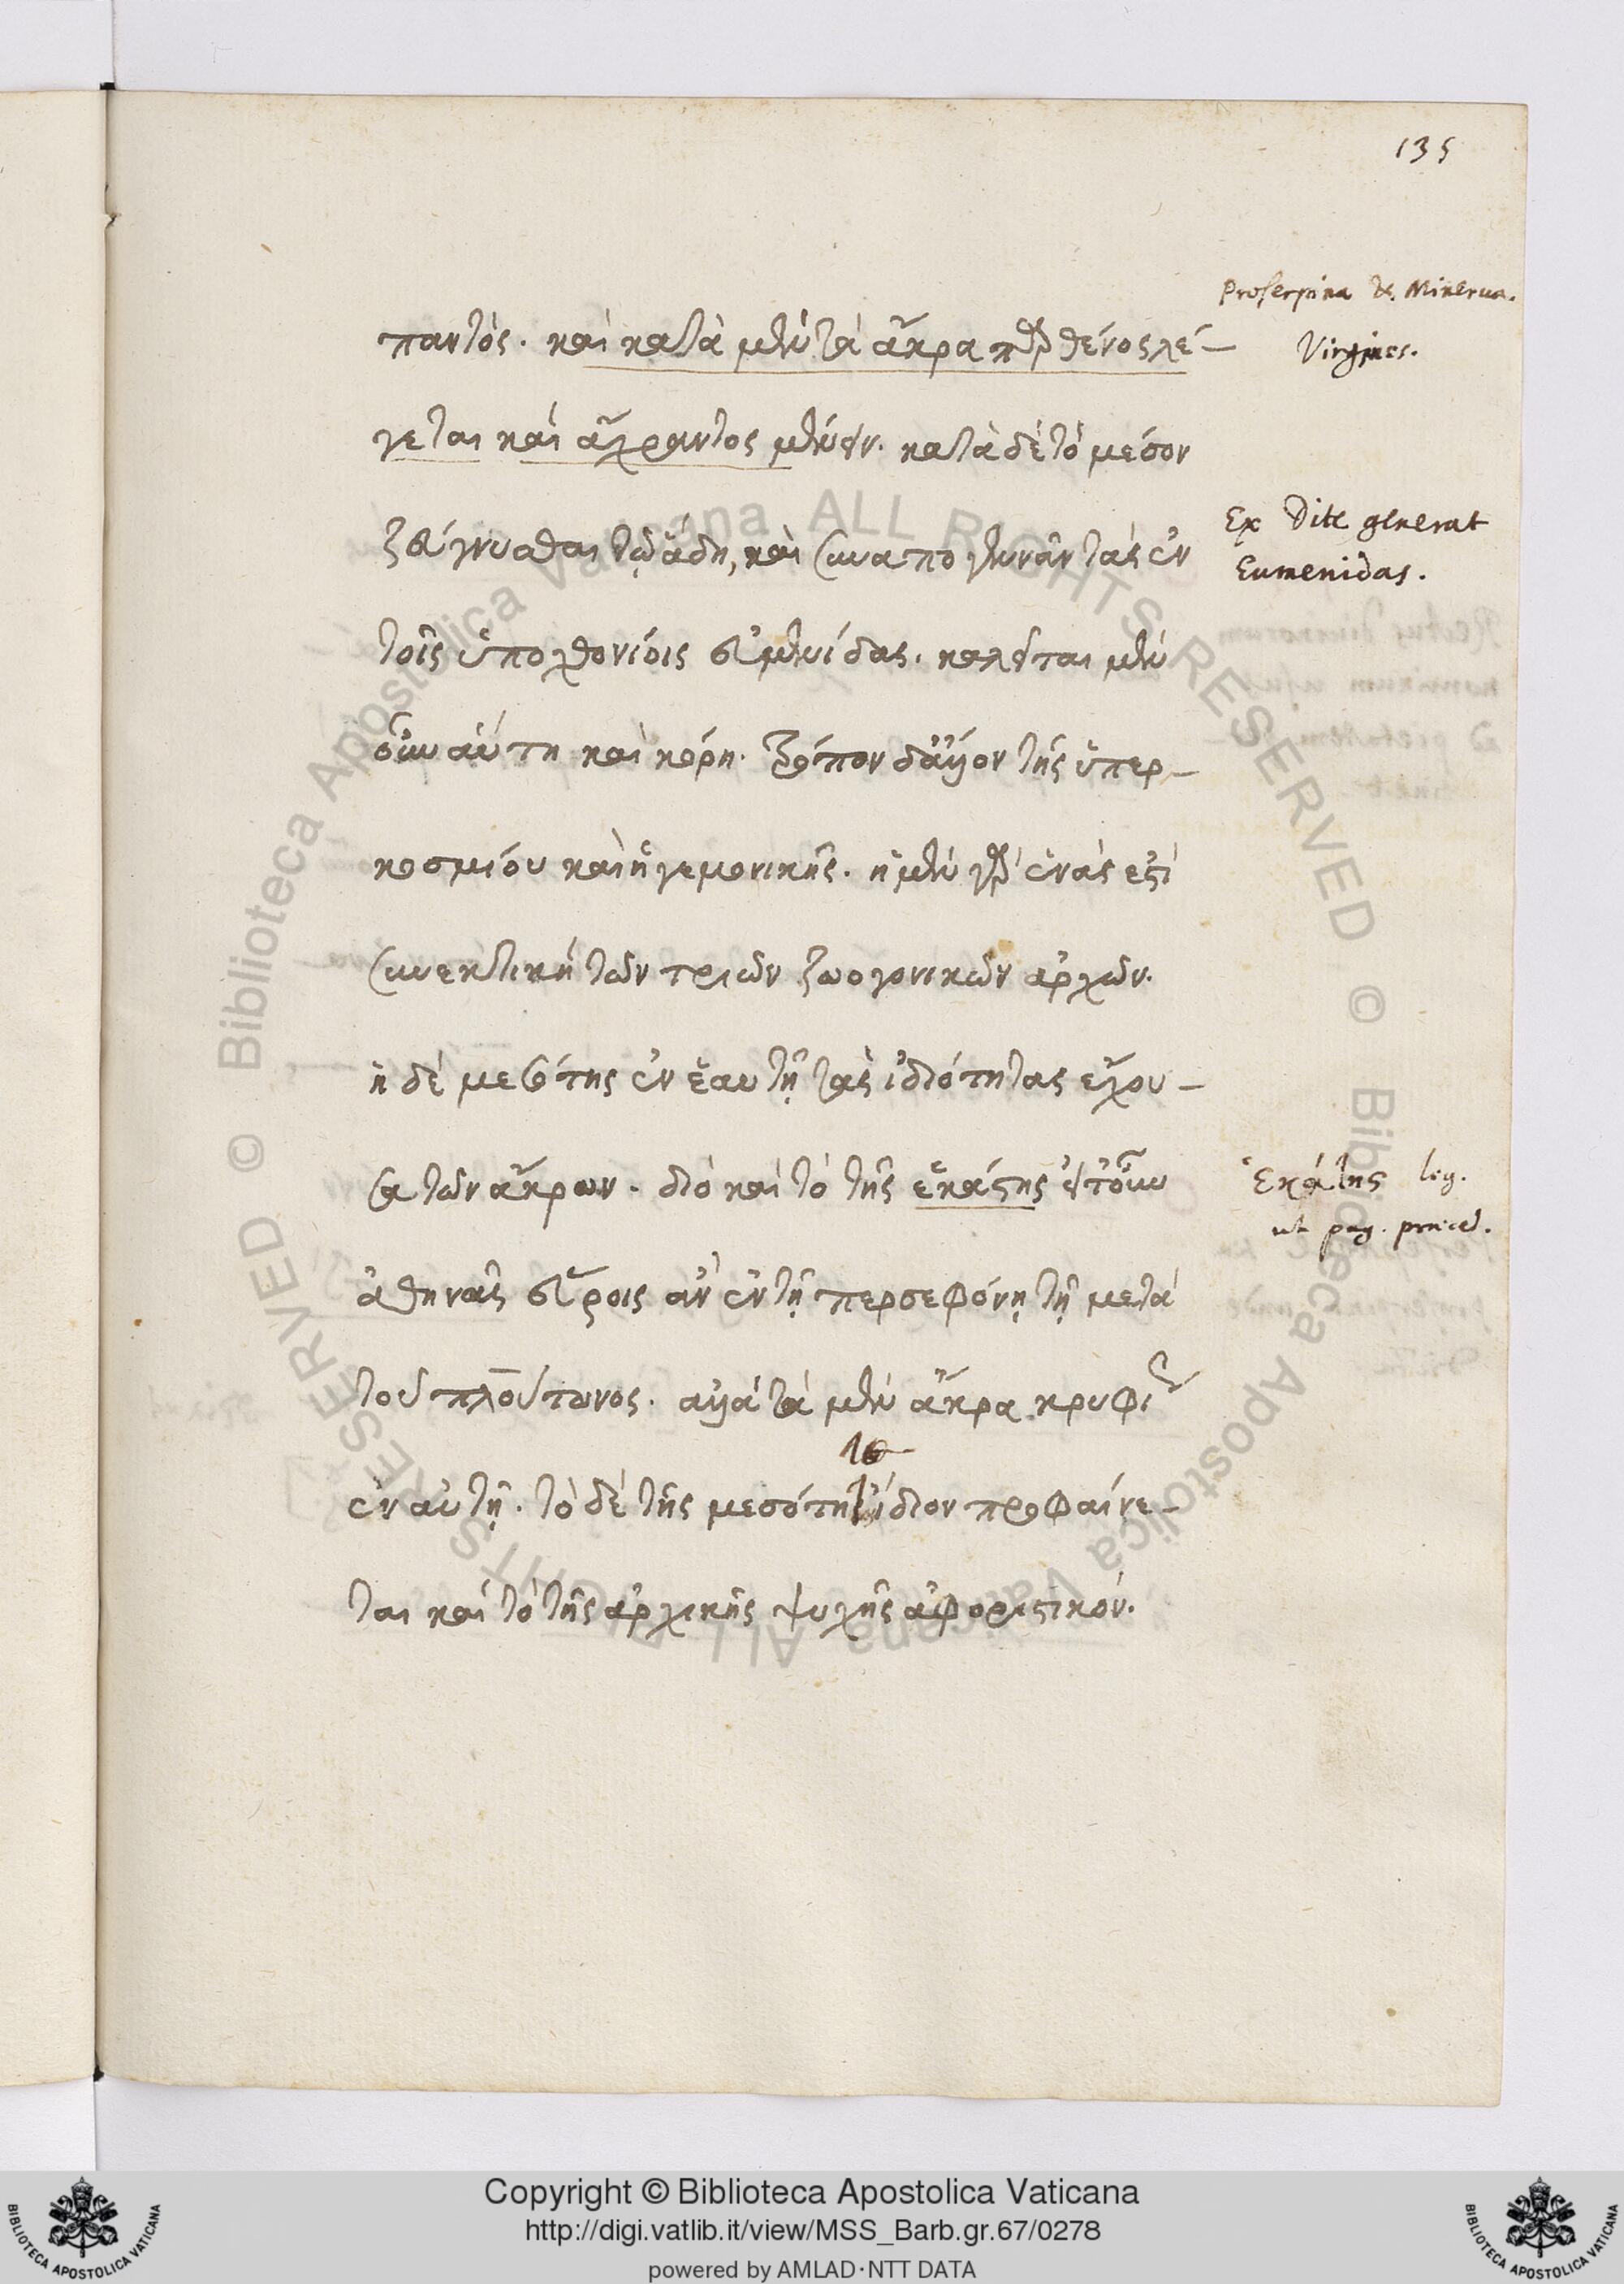 135
Proserpina & Minerva.
Virgines.
παντὸς. καὶ κατὰ μὲν τὰ ἄκρα παρθένος λέ-
γεται καὶ ἄχραντος μένειν. κατὰ δὲ τὸ μέσον
ζεύγνυσθαι τῷ ἅδη, καὶ συναπογεννᾶν τὰς ἐν
τοῖς ὑποχθονίοις εὐμενίδας. καλεῖται μὲν
οὖν αὕτη καὶ κόρη. τρόπον δ' ἄλλον τῆς ὑπερ-
κοσμίου καὶ ἡγεμονικῆς. ἡ μὲν γὰρ ἑνάς ἐστί
συνεκτικὴ τῶν τριῶν ζωογονικῶν ἀρχῶν.
ἡ δὲ μεσότης ἐν ἑαυτῇ τὰς ἰδιότητας ἔχου-
σα τῶν ἄκρων. διὸ καὶ τὸ τῆς ἑκάστης
ἀθηνᾶς εὕροις ἂν ἐν τῇ περσεφόνῃ τῇ μετὰ
τοῦ πλούτωνος. ἀλλὰ τὰ μὲν ἄκρα κρυφίως
ἐν αὐτῇ. τὸ δὲ τῆς μεσότητος ἴδιον προφαίνε-
ται καὶ τὸ τῆς ἀρχικῆς ψυχῆς ἀφοριστικόν.
Ex Dite generat
Eumenidas.
Ἑκάτης leg.
ut pag. praeced.
Copyright © Biblioteca Apostolica Vaticana
http://digi.vatlib.it/view/MSS_Barb.gr.67/0278
powered by AMLAD·NTT DATA
BIBLIOTECA APOSTOLICA VATICANA
BIBLIOTECA APOSTOLICA VATICANA
© Biblioteca Apostolica Vaticana ALL RIGHTS RESERVED
© Biblioteca Apostolica Vaticana ALL RIGHTS RESERVED